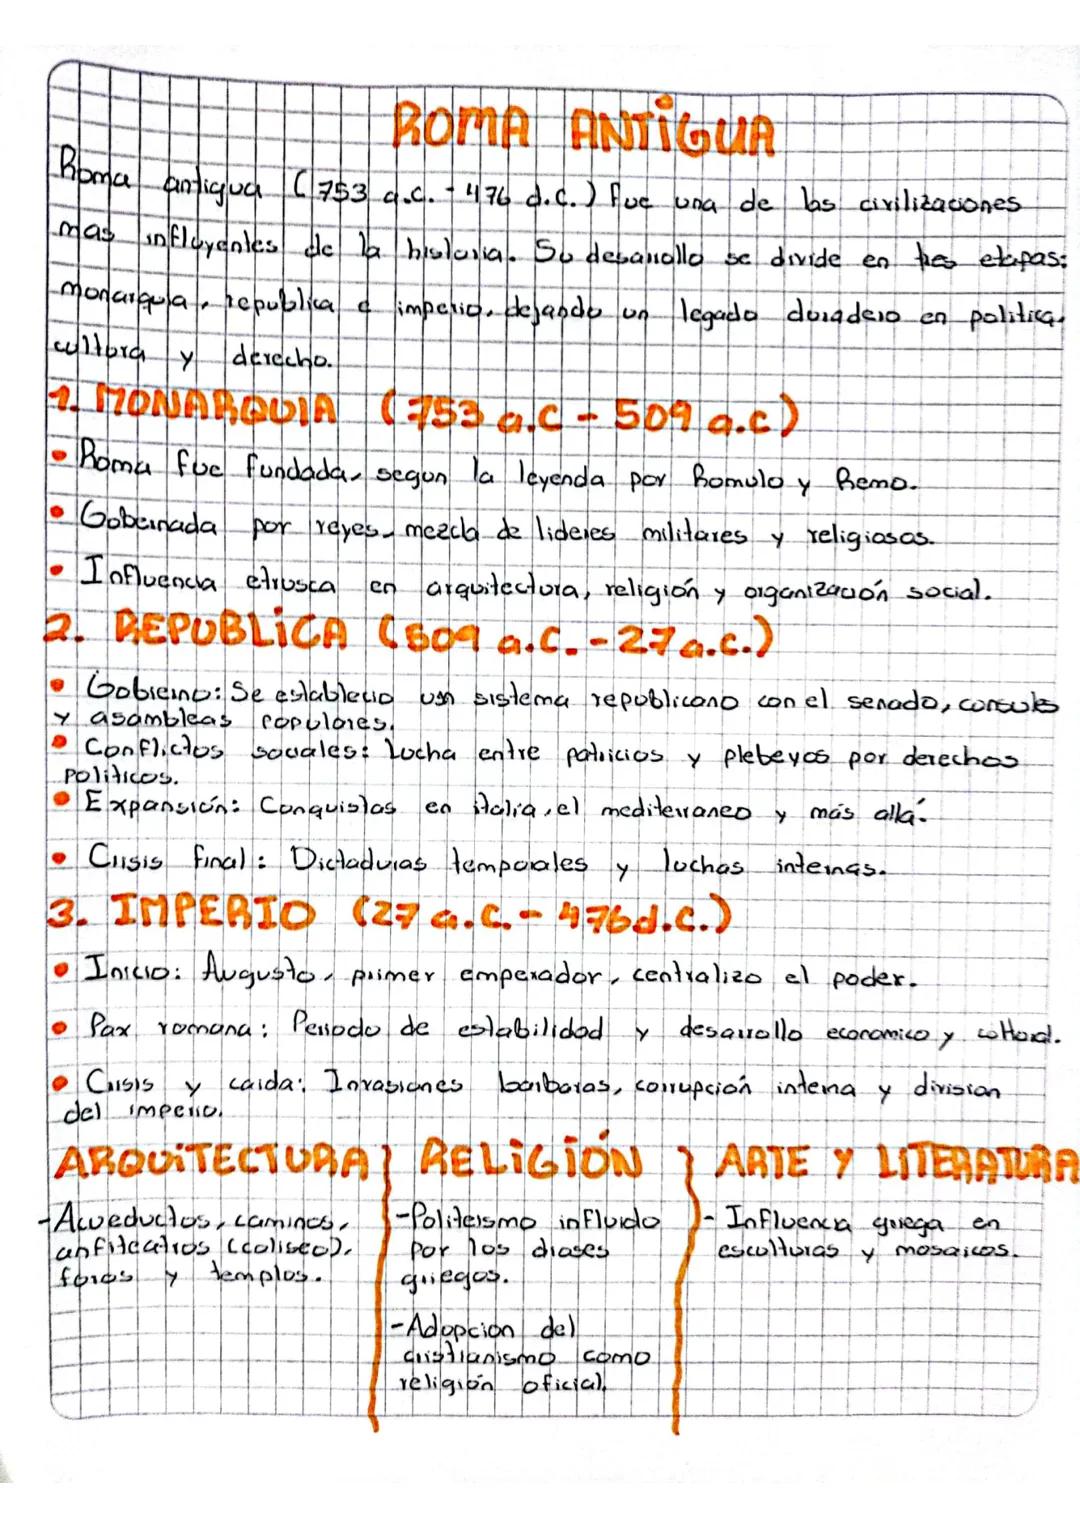 ROMA ANTiGUA
Roma antigua (753 a.c. - 476 d.c.) fue una de las civilizaciones
mas influyentes de la historia. Su desarrollo se divide en tres etapas:
monarquia, republica e imperio, dejando un legado duradero en politica,
cultura y derecho.
1. MONARQUIA (753 a.c - 509 a.c)
• Roma fue fundada, segun la leyenda por Romulo y Remo.
• Gobernada por reyes, mezcla de lideres militares y religiosos.
• Influencia etrusca en arquitectura, religión y organización social.
2. REPUBLiCA (509 a.c. - 27 a.c.)
• Gobierno: Se establecio un sistema republicano con el senado, consules
y asambleas populares.
• Conflictos sociales: Lucha entre patricios y plebeyos por derechos
politicos.
• Expansión: Conquistas en italia, el mediterraneo y más allá.
• Crisis final: Dictaduras temporales y luchas internas.
3. IMPERIO (27 a.c. - 476 d.c.)
• Inicio: Augusto, primer emperador, centralizo el poder.
• Pax romana: Periodo de estabilidad y desarrollo economico y cultural.
• Crisis y caida: Invasiones barbaras, corrupción interna y division
del imperio.
ARQUiTECTURA
- Acueductos, caminos,
anfiteatros (coliseo),
foros y templos.
RELiGiÓN
- Politeismo influido
por los dioses
griegos.
- Adopcion del
cristianismo como
religión oficial.
ARTE Y LiTERATURA
- Influencia griega en
esculturas y mosaicos.